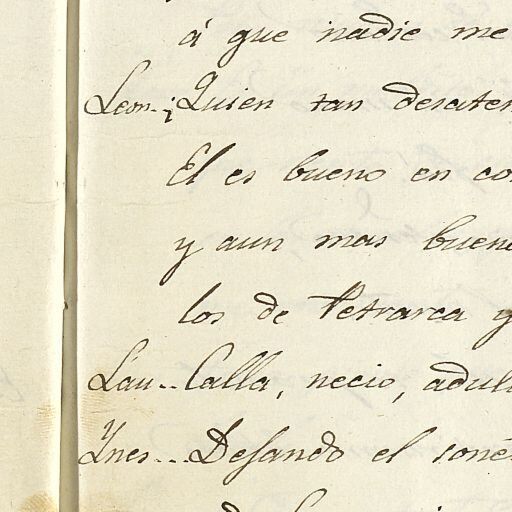 á que nadie me
Leon.. ¿Quien tan desaten
El es bueno en co
y aun mas bueno
los de Petrarca y
Lau.. Calla, necio, adul
Ynes... Dejando el soné